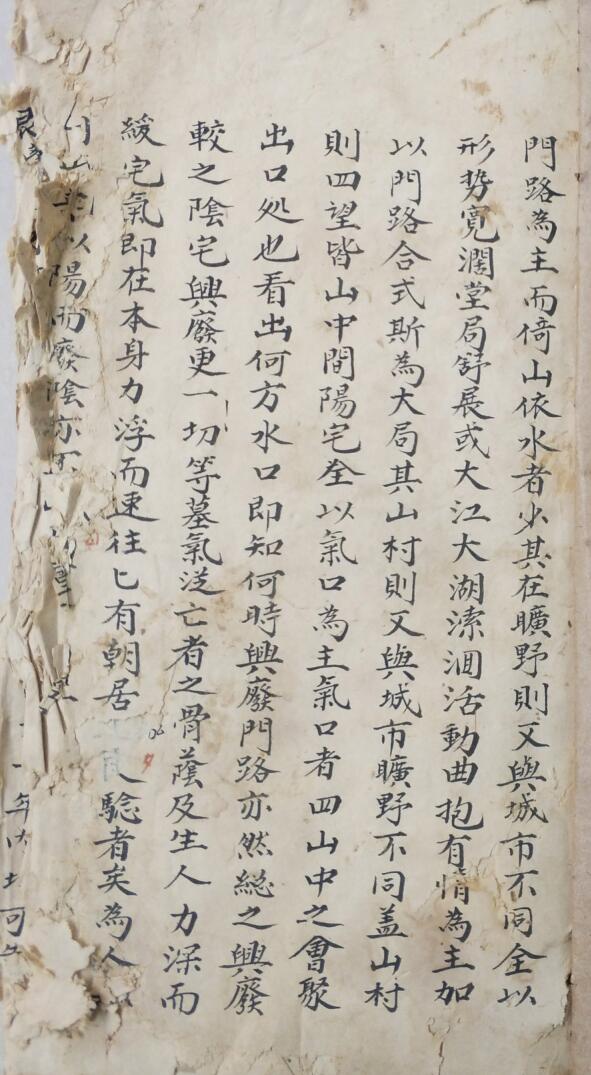 門路為主而倚山依水者少其在曠野則又與城市不同全以
形势寬濶堂局舒展或大江大湖潆洄活動曲抱有情為主加
以門路合式斯為大局其山村則又與城市曠野不同盖山村
則四望皆山中間陽宅全以氣口為主氣口者四山中之會聚
出口処也看出何方水口即知何時興廢門路亦然総之興廢
較之陰宅興廢更一切等墓氣送亡者之骨蔭及生人力深而
緩宅氣即在本身力浮而速往匕有朝居有騐者矣為人
以陽而廢陰亦不
年 土何